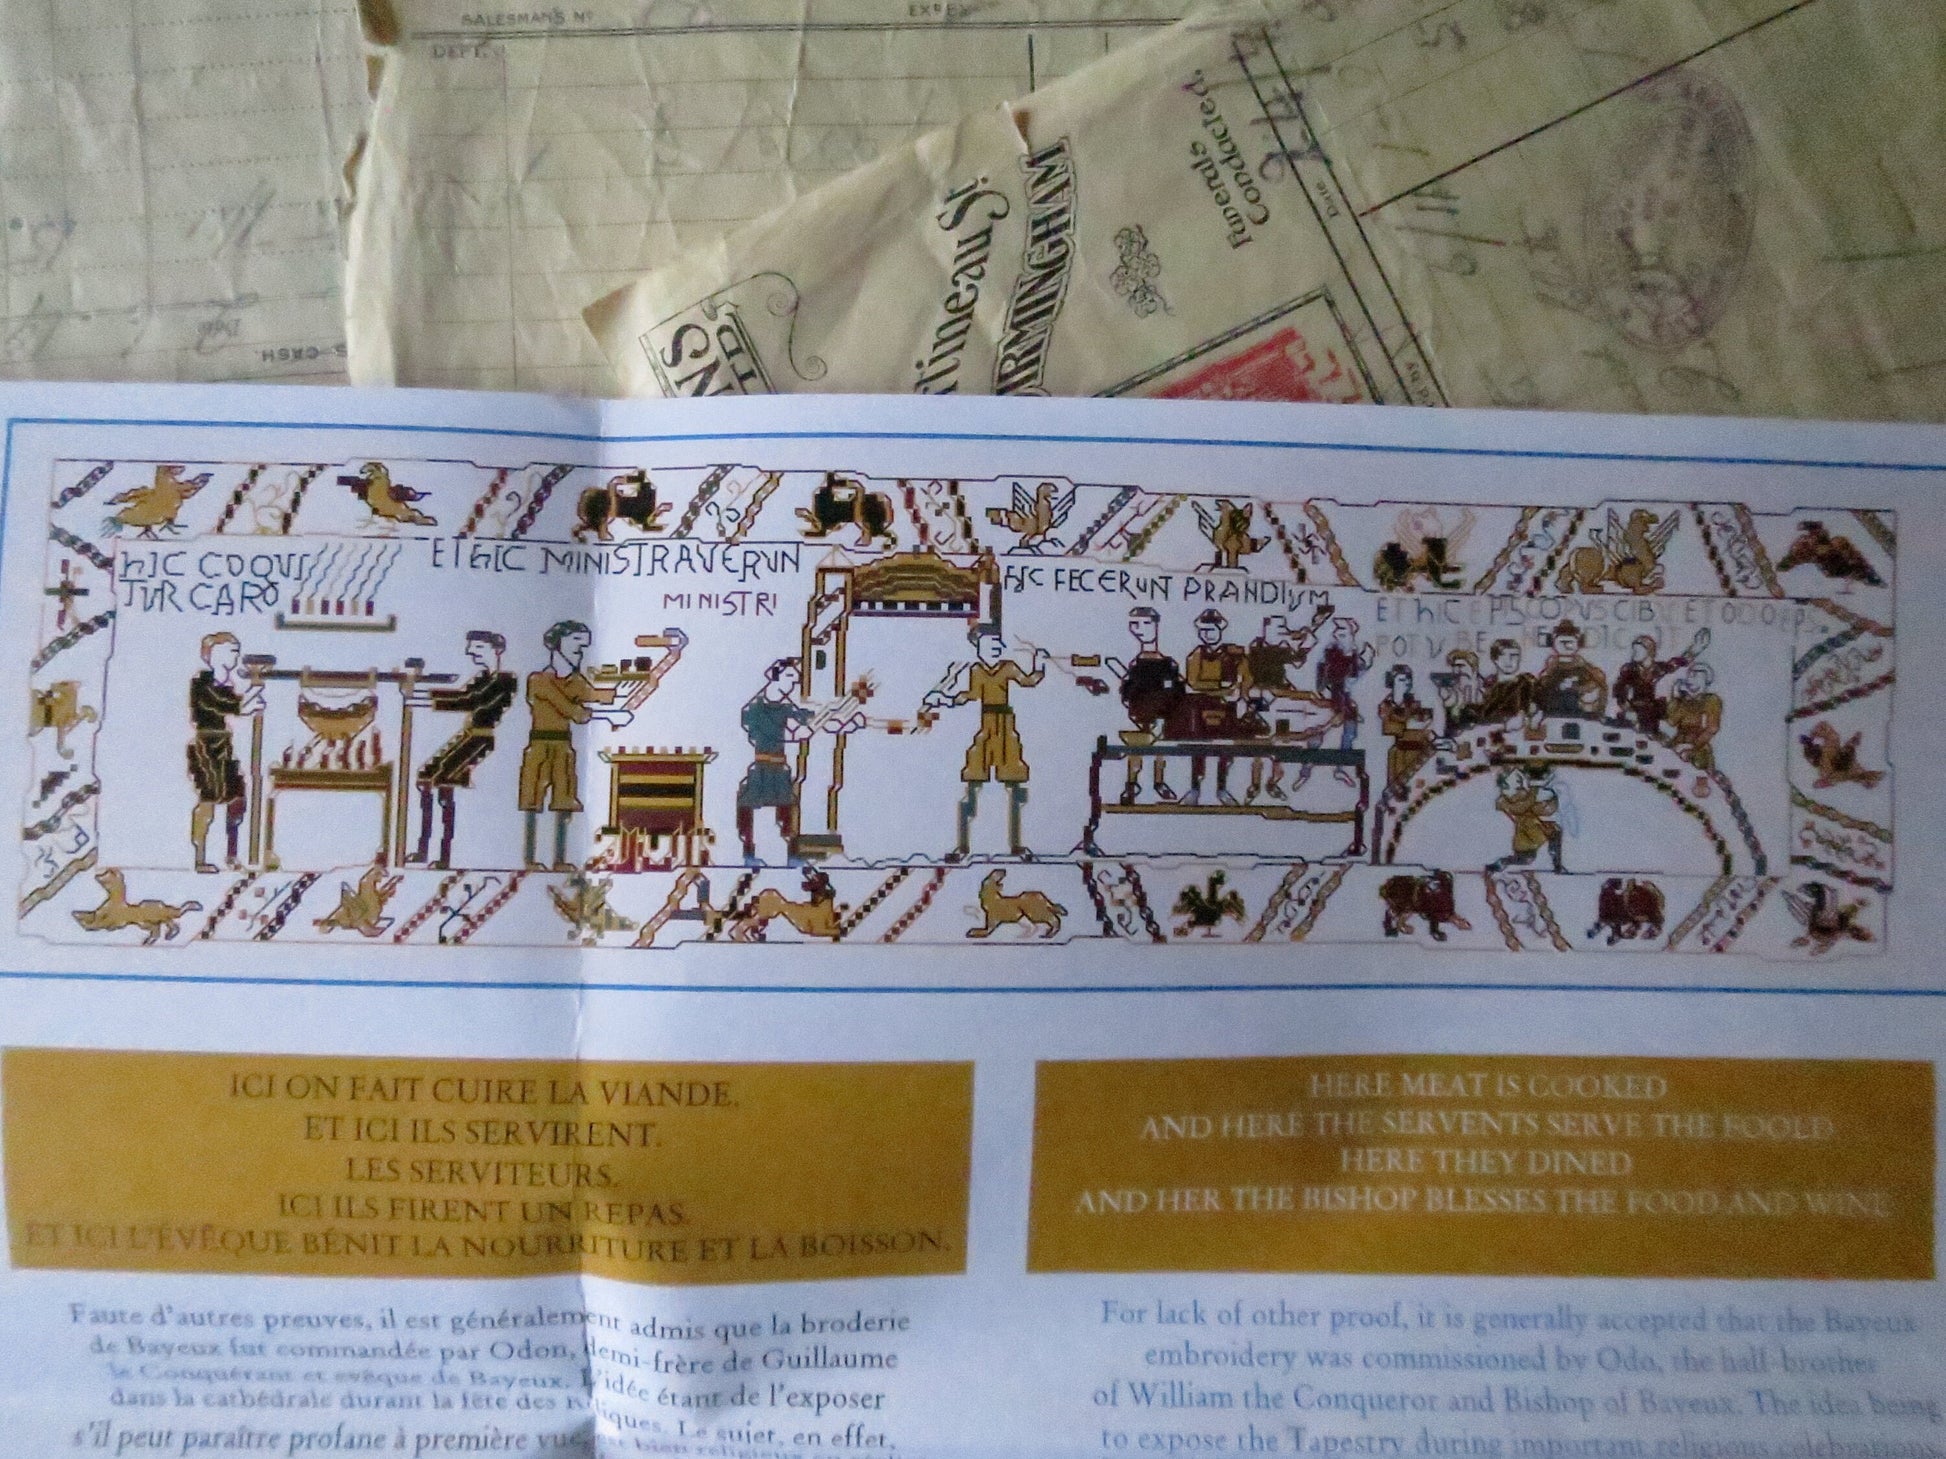 SALESMAN'S Nº
DEPT.
Date
S. CASH.
tineau St.
BIRMINGHAM
Funerals
Conducted.
Date
hIC COQUI
TUR CARO
ET hIC MINISTRAVERUN
MINISTRI
hIC FECERUNT PRANDIUM
ET hIC EPSCOPUS CIBU ET ODO EPS.
POTU BE NE DIC IT
ICI ON FAIT CUIRE LA VIANDE.
ET ICI ILS SERVIRENT.
LES SERVITEURS.
ICI ILS FIRENT UN REPAS.
ET ICI L'ÉVÊQUE BÉNIT LA NOURRITURE ET LA BOISSON.
HERE MEAT IS COOKED
AND HERE THE SERVENTS SERVE THE FOOLD
HERE THEY DINED
AND HER THE BISHOP BLESSES THE FOOD AND WINE
Faute d'autres preuves, il est généralement admis que la broderie
de Bayeux fut commandée par Odon, demi-frère de Guillaume
le Conquérant et évêque de Bayeux. L'idée étant de l'exposer
dans la cathédrale durant la fête des Reliques. Le sujet, en effet,
s'il peut paraître profane à première vue, est bien religieux
For lack of other proof, it is generally accepted that the Bayeux
embroidery was commissioned by Odo, the half-brother
of William the Conqueror and Bishop of Bayeux. The idea being
to expose the Tapestry during important religious celebrations